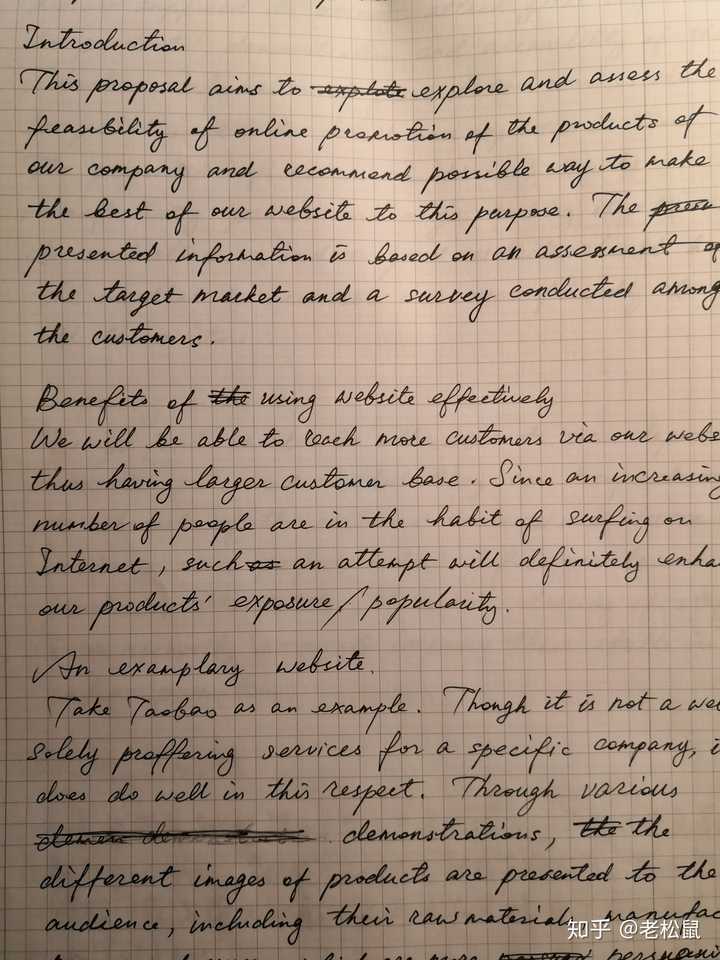 Introduction
This proposal aims to explore and assess the
feasibility of online promotion of the products of
our company and recommend possible way to make
the best of our website to this purpose. The
presented information is based on an assessment of
the target market and a survey conducted among
the customers.
Benefits of the using website effectively
We will be able to reach more customers via our webs
thus having larger customer base. Since an increasing
number of people are in the habit of surfing on
Internet, such as an attempt will definitely enha
our products' exposure/popularity.
An examplary website.
Take Taobao as an example. Though it is not a we
solely proffering services for a specific company, i
does do well in this respect. Through various
demonstrations, the the
different images of products are presented to the
audience, including their raw materials, manufac
知乎 @老松鼠